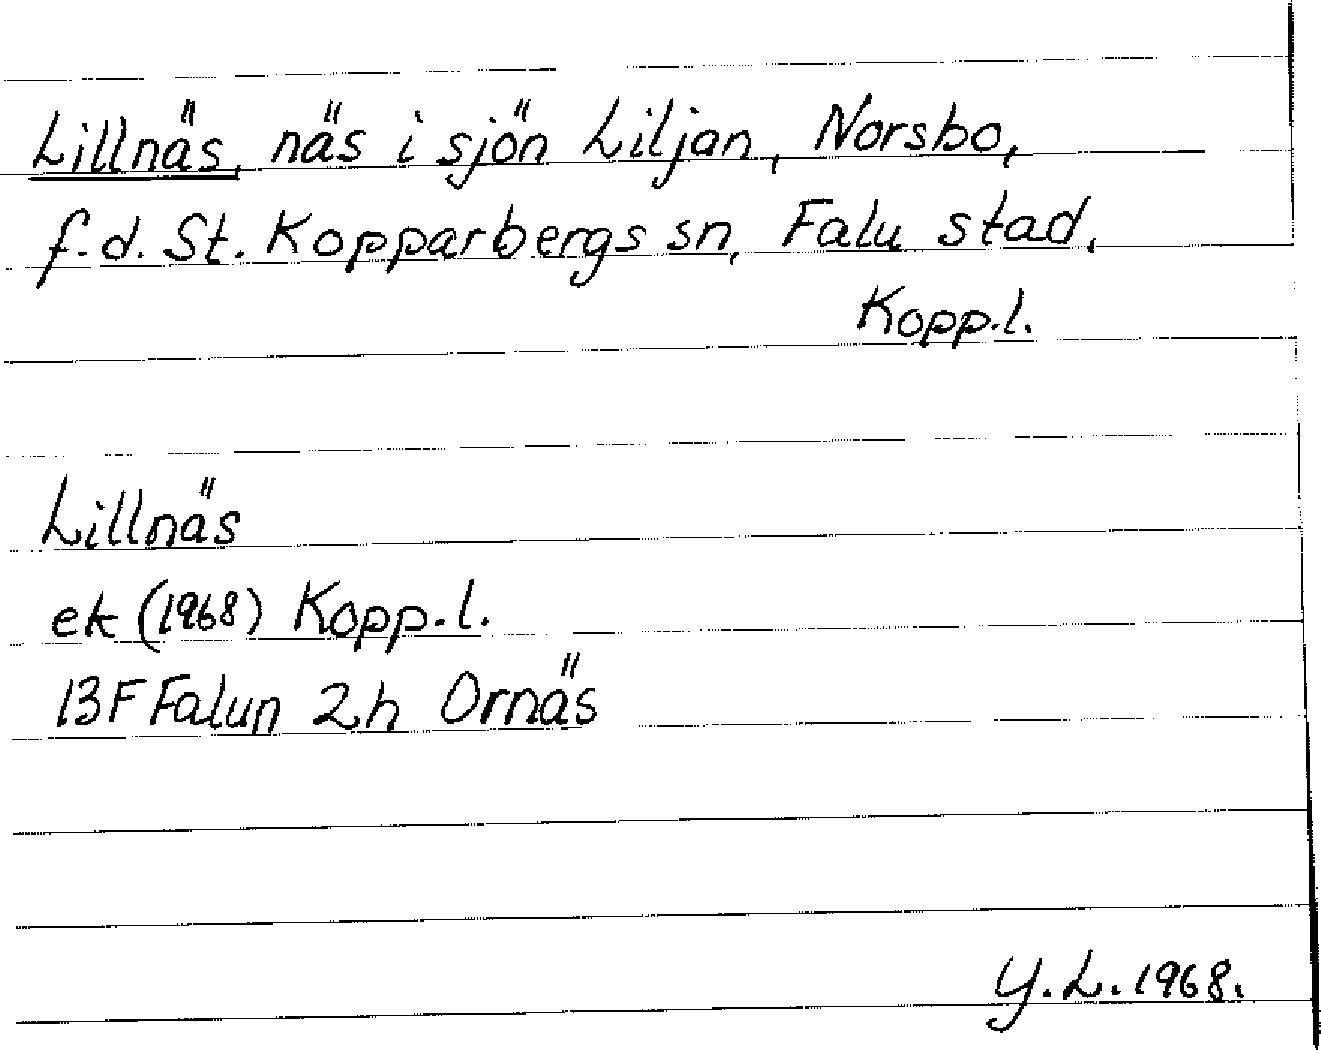 Lillnäs, näs i sjön Liljan, Norsbo,
f.d. St. Kopparbergs sn, Falu stad,
Kopp.l.
Lillnäs
ek (1968) Kopp.l.
13F Falun 2h Ornäs
Y.L. 1968.